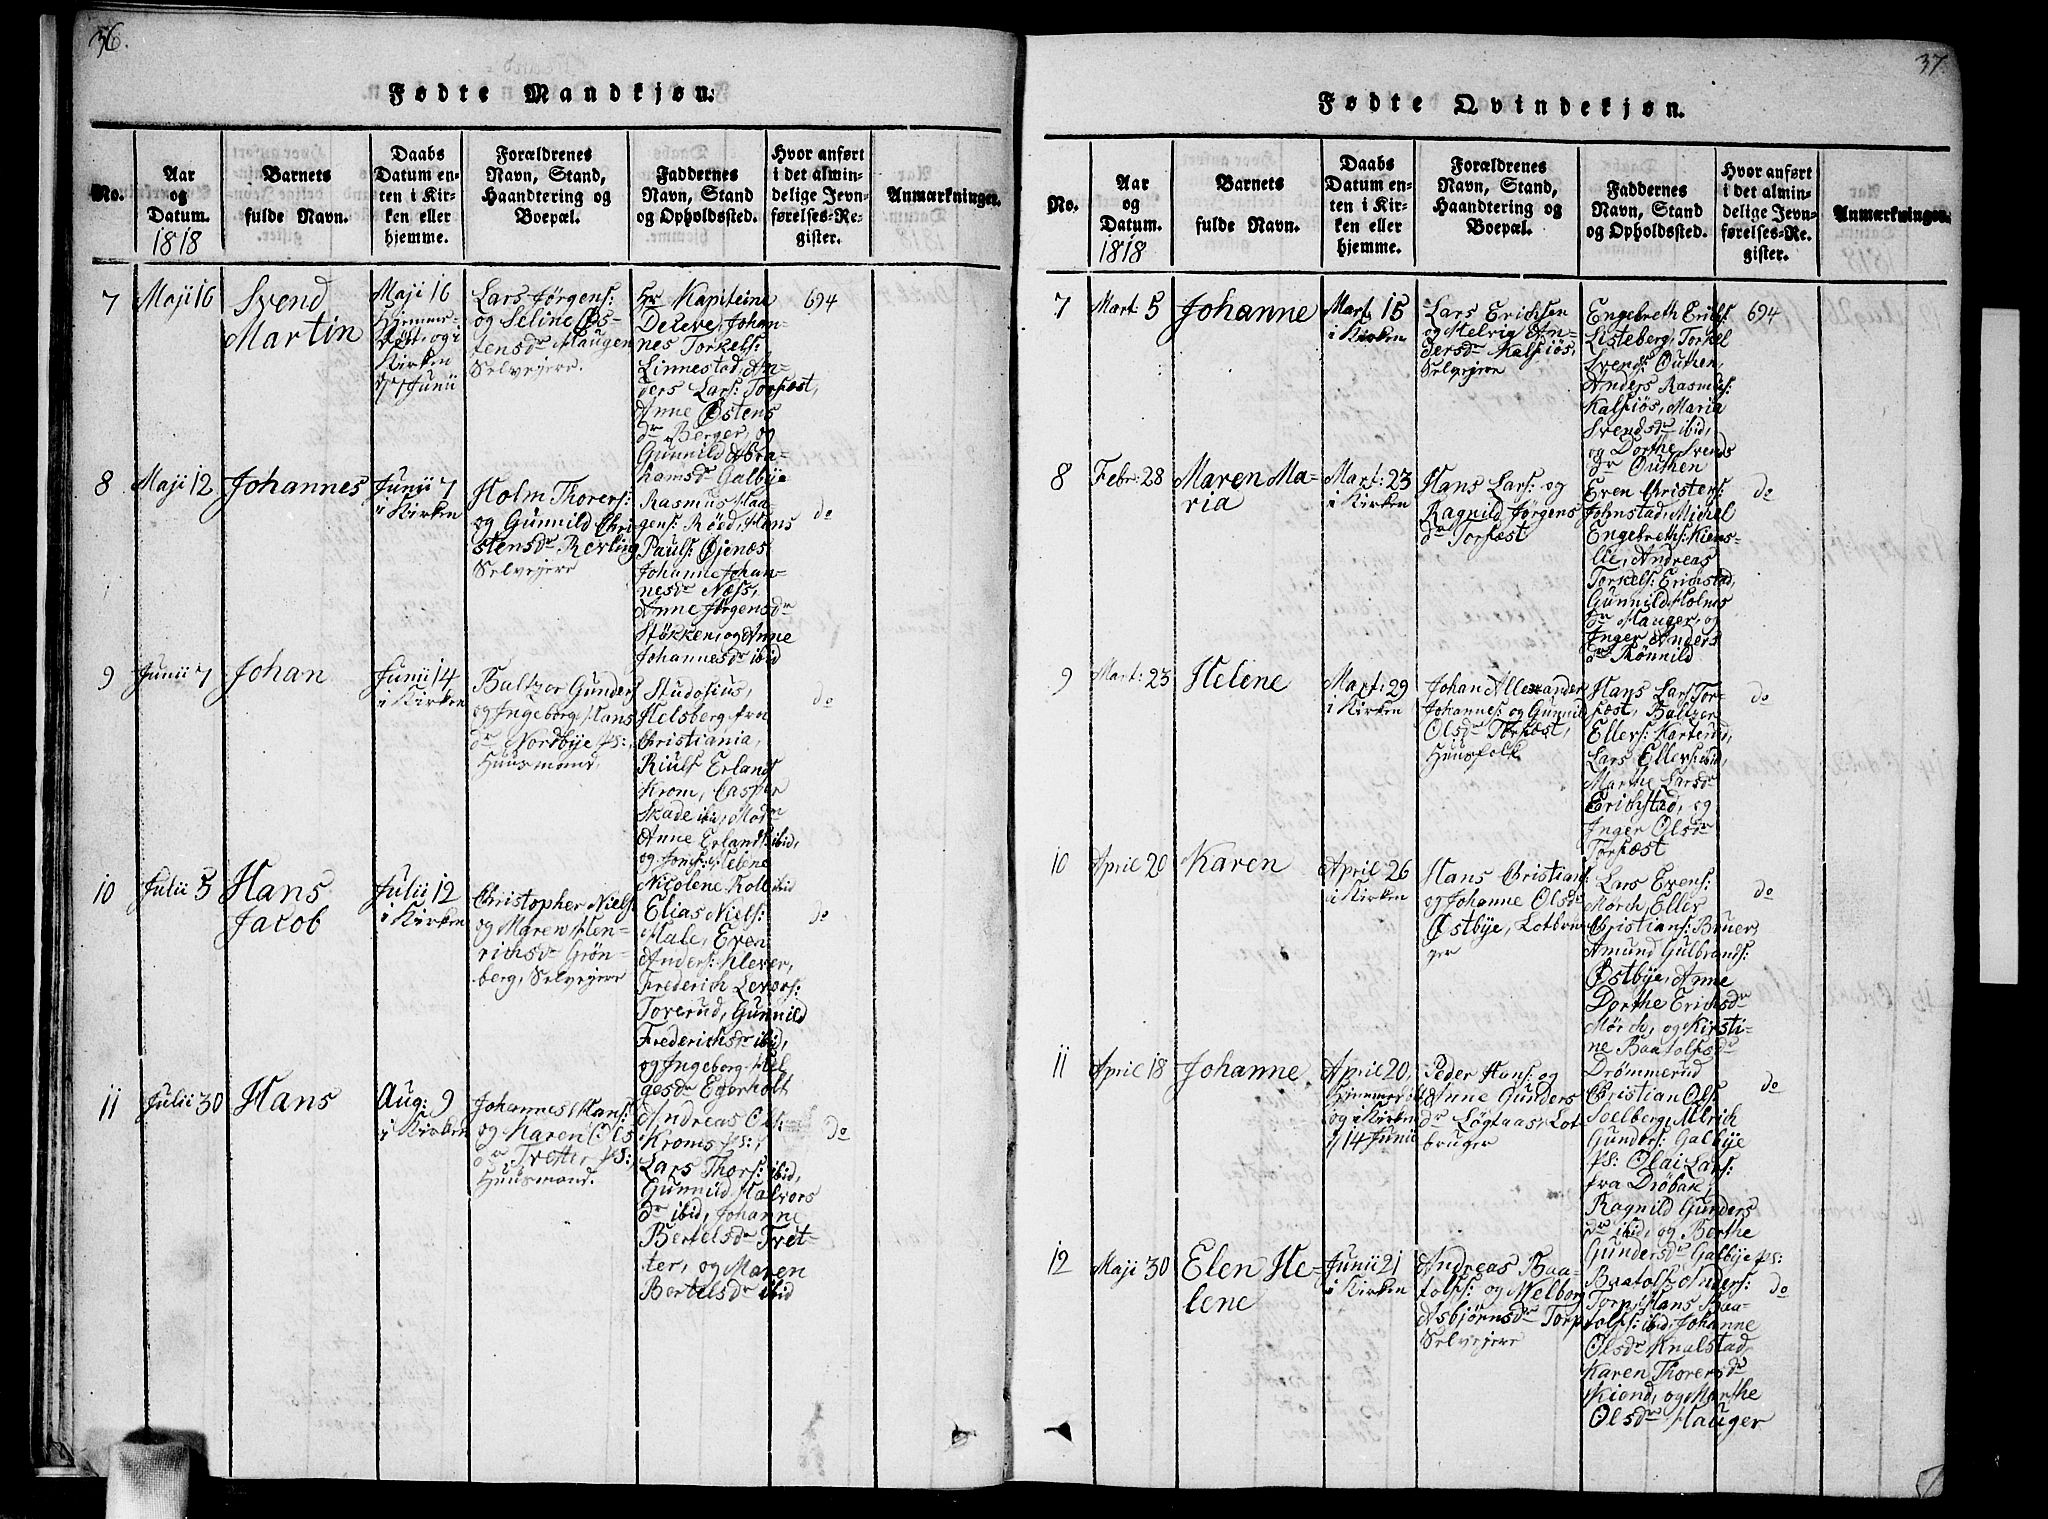 36.
Fødte Mandkjøn.
No.
Aar
og
Datum.
1818
Barnets
fulde Navn.
Daabs
Datum en-
ten i Kir-
ken eller
hjemme.
Forældrenes
Navn, Stand,
Haandtering og
Boepæl.
Faddernes
Navn, Stand
og Opholdssted.
Hvor anført
i det almin-
delige Jevn-
førelses-Re-
gister.
Anmærkninger.
7
Maji 16
Svend
Martin
Maji 16
Hjemme-
og i
Kirken
7 Junii
Lars Jørgens:
og Seline Øs-
tensdr Haugen
Selvejere.
Hr Kapiteine
Johan-
nes Torkels:
Linnestad, An-
ders Lars: Torfæst,
Anne Østens
dr Berger, og
Gunnild Abra-
hamsdr Galbye
694
8
Maji 12
Johannes
Junii 7
i Kirken
Holm Thorers:
og Gunnild Chri-
stensdr Revling
Selvejere
Rasmus Haa-
gens: Røed, Hans
Pauls: Øjenæs
Johanne Johan-
nesdr Næss,
Anne Jørgensdr
Støkken, og Anne
Johannesdr ibid
do
9
Junii 7
Johan
Junii 14
i Kirken
Baltzer Gunders
og Ingeborg Hans
dr Nordbye ps:,
Huusmand.
Studosius,
Helsberg fra
Christiania,
Riulf Erlands
Krom, Casper
Skade ibid, Mdm
Anne Erlands ibid,
og Jomf: Helene
Nicolene Koll ibid
do
10
Julii 5
Hans
Jacob
Julii 12
i Kirken
Christopher Niels:
og Maren Hen-
richsdr Grøn-
berg, Selvejere
Elias Niels:
Hale, Even
Anders: Klever,
Frederich Levors:
Toverud, Gunnild
Frederichsdr ibid,
og Ingeborg Hel-
gesdr Egerholt
do
11
Julii 30
Hans
Aug: 9
i Kirken
Johannes Hans:
og Karen Ols
dr Tvetter ps:,
Huusmand.
Andreas Ols:
Krom ps:,
Lars Thors: ibid,
Gunnild Halvors
dr ibid, Johanne
Bertelsdr Tvet-
ter, og Maren
Bertelsdr ibid
do
37.
Fødte Qvindekjøn.
No.
Aar
og
Datum.
1818
Barnets
fulde Navn.
Daabs
Datum en-
ten i Kir-
ken eller
hjemme.
Forældrenes
Navn, Stand,
Haandtering og
Boepæl.
Faddernes
Navn, Stand
og Opholdssted.
Hvor anført
i det almin-
delige Jevn-
førelses-Re-
gister.
Anmærkninger.
7
Mart: 5
Johanne
Mart: 15
i Kirken
Lars Erichsen
og Helvig An-
dersdr Kalsiøs,
Selvejere
Engebreth Erichs
Listeberg, Torkel
Svends: Outhen,
Anders Rasmus:
Kalsiøs, Maria
Svendsdr ibid,
og Dorthe Svends
dr Outhen
694
8
Febr: 28
Maren Ma-
ria
Mart: 23
i Kirken
Hans Lars: og
Ragnild Jørgens
dr Torfæst
Even Christens:
Johnstad, Michel
Engebreths: Kiens-
lie, Andreas
Torkels: Erichstad,
Gunnild Holms
dr Hauger, og
Inger Anders
dr Rønnild
do
9
Mart: 23
Helene
Mart: 29
i Kirken
Johan Allexander
Johannes: og Gunnild
Olsdr Torfæst,
Huusfolk
Hans Lars: Tor-
fæst, Baltzer
Ellers: Karterud,
Lars Ellers: ibid,
Marthe Larsdr
Erichstad, og
Inger Olsdr
Torfæst
do
10
April 20
Karen
April 26
i Kirken
Hans Christians:
og Johanne Olsdr
Østbye, Lotbru-
ger
Lars Evens:
Mørch, Eller
Christians: Bruer,
Amund Gulbrands:
Østbye, Anne
Dorthe Erichsdr
Mørch, og Kirsti-
ne Baatolfsdr
Drømmerud
do
11
April 18
Johanne
April 20,
Hjemmedøbt
og i Kirken
14 Junii
Peder Hans: og
Anne Gunders
dr Løgtaas, Lot-
bruger
Christian Ols:
Soelberg, Ulrich
Gunders: Galbye
ps: Olai Lars:
fra Drøbak,
Ragnild Gunders
dr ibid, og Berthe
Gundersdr Galbye ps:
do
12
Maji 30
Elen He-
lene
Junii 21
i Kirken
Andreas Baa-
tolfs: og Nelborg
Asbjørnsdr Torp
Selvejere
Baatolf Anders:
Torp, Hans Baa-
tolfs: ibid, Johanne
Olsdr Knalstad,
Karen Thorersdr
Kiend, og Marthe
Olsdr Hauger
do